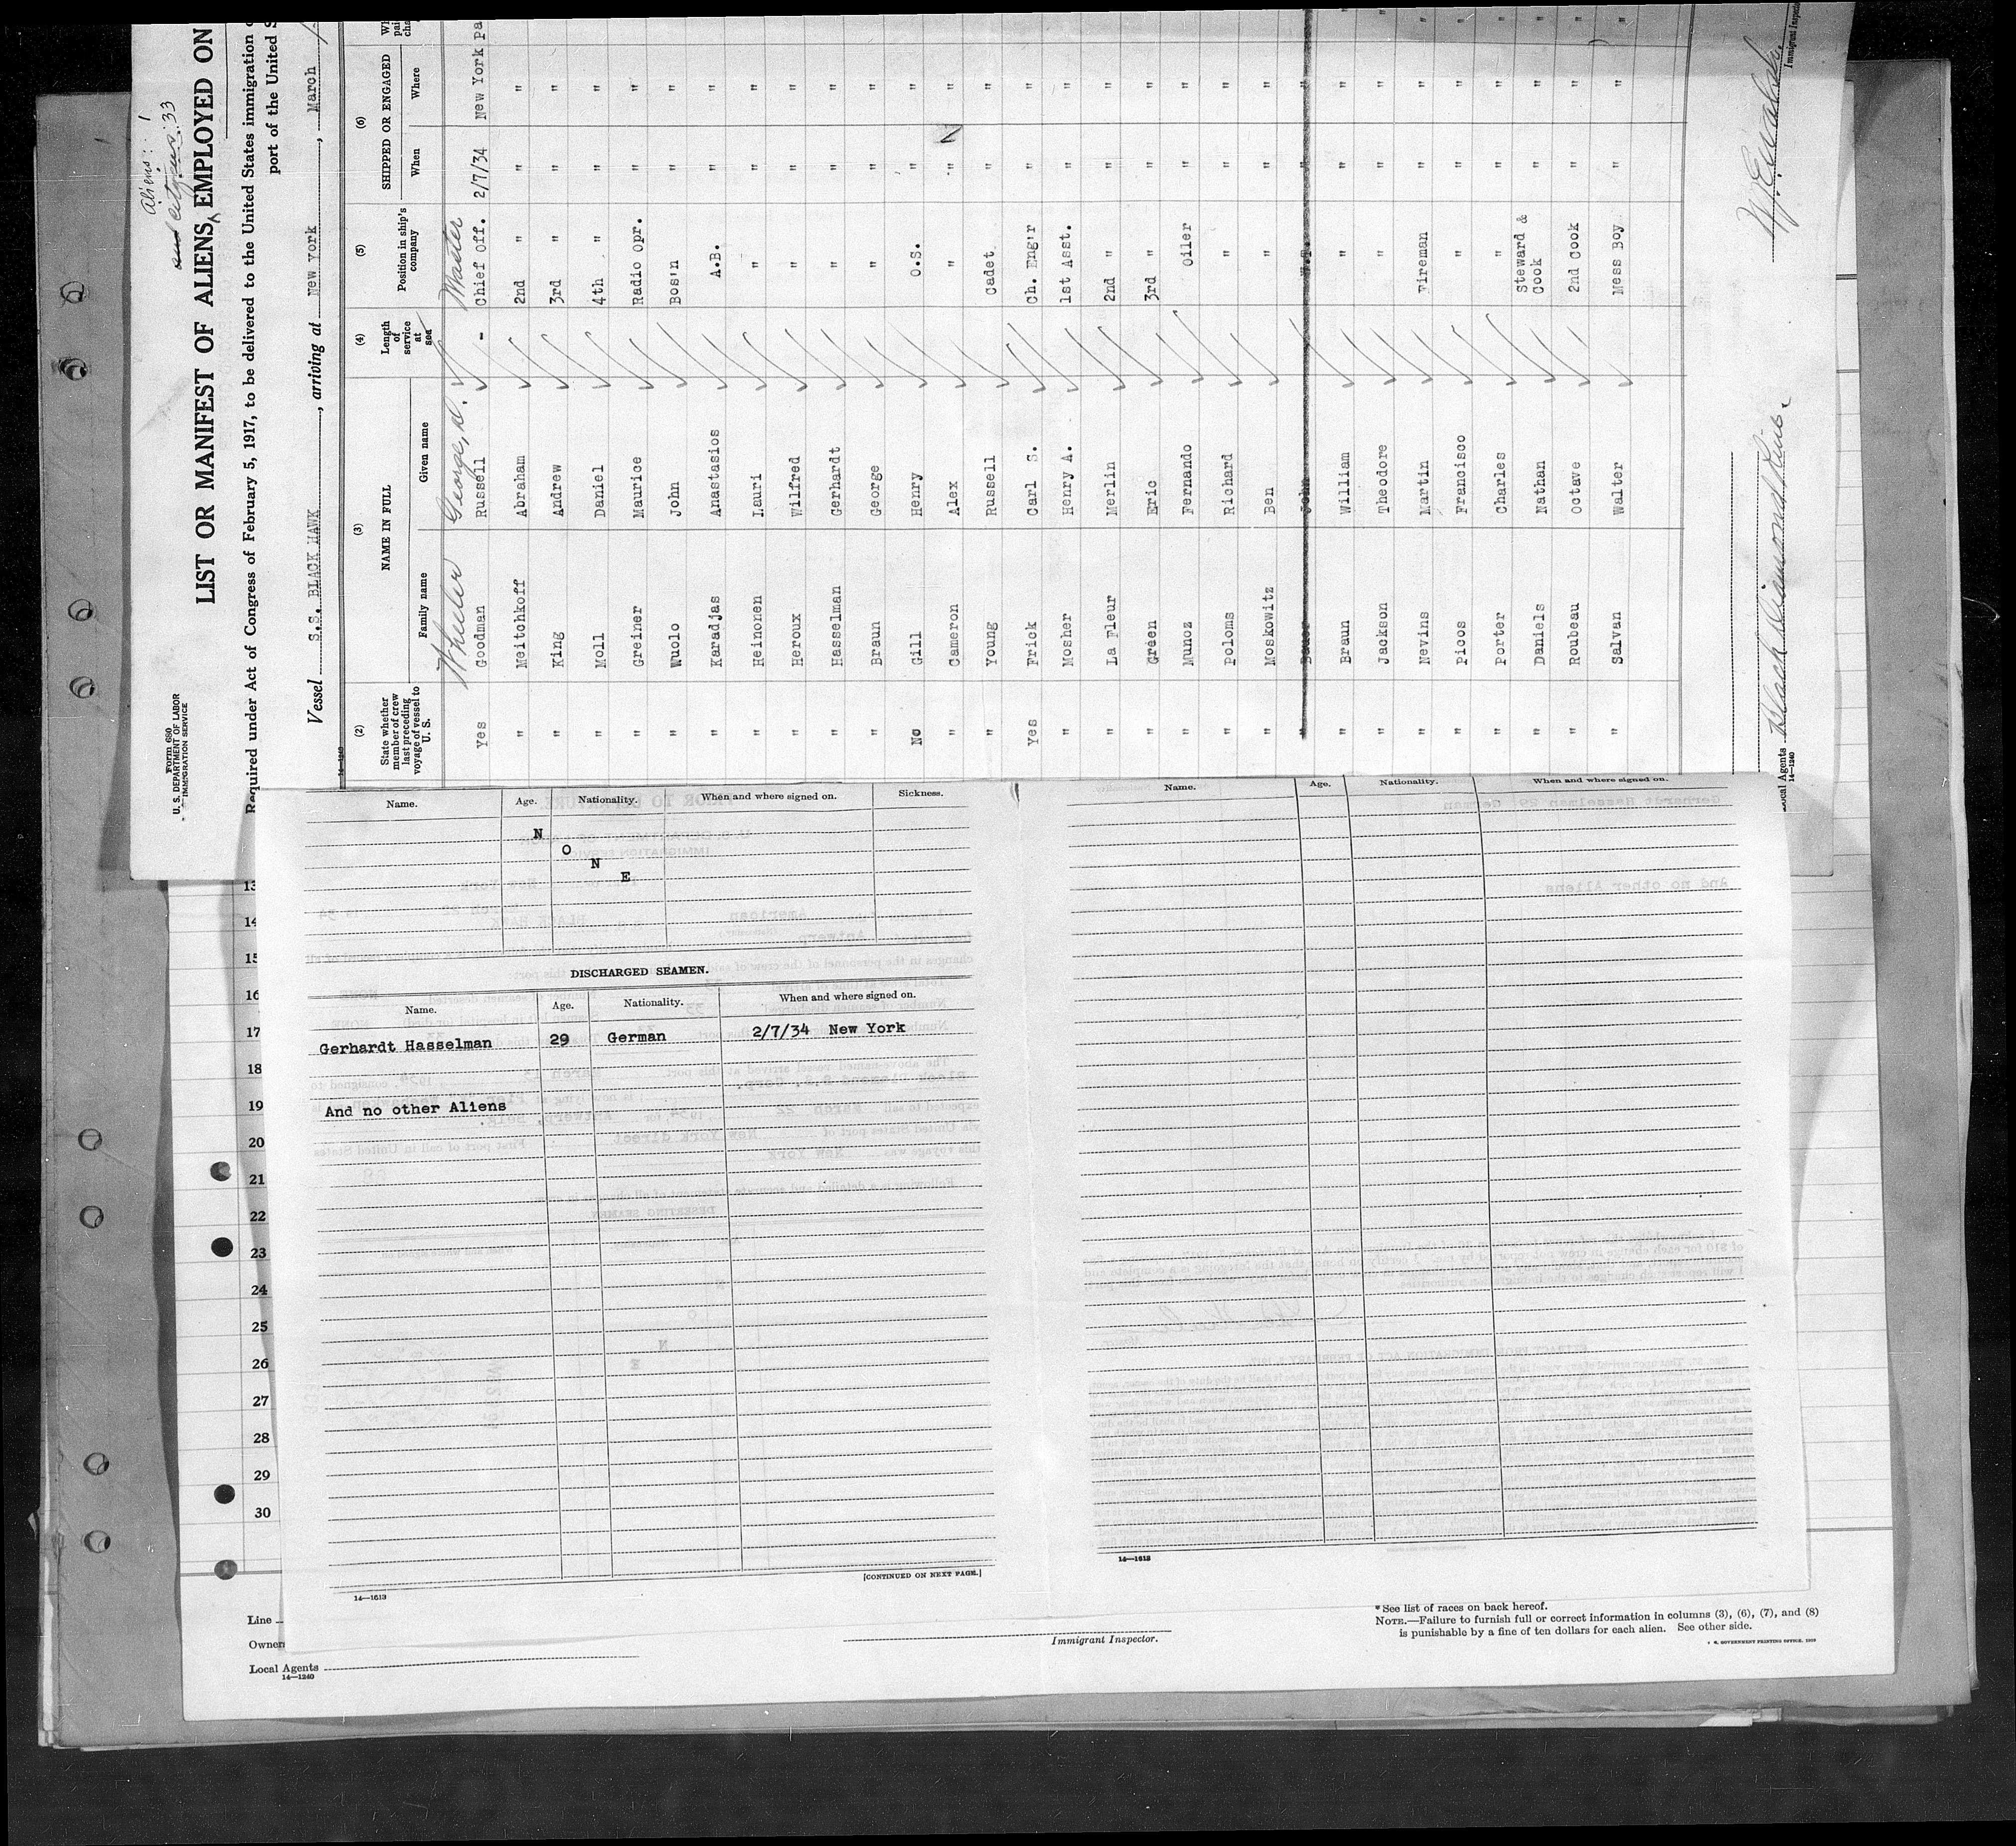 Form 680
U. S. DEPARTMENT OF LABOR
IMMIGRATION SERVICE
Aliens: 1
and citizens: 33
LIST OR MANIFEST OF ALIENS EMPLOYED ON
Required under Act of Congress of February 5, 1917, to be delivered to the United States immigration
port of the United
Vessel S.S. BLACK HAWK, arriving at New York, March
14—1240
(2) (3) (4) (5) (6)
State whether member of crew last preceding voyage of vessel to U. S. NAME IN FULL Length of service at sea Position in ship's company SHIPPED OR ENGAGED
Family name Given name When Where
Wheeler George, A. Master
Yes Goodman Russell - Chief Off. 2/7/34 New York
" Meitchkoff Abraham 2nd " " "
" King Andrew 3rd " " "
" Moll Daniel 4th " " "
" Greiner Maurice Radio Opr. " "
" Wuolo John Bos'n " "
" Karadjas Anastasios A.B. " "
" Heinonen Lauri " " "
" Heroux Wilfred " " "
" Hasselman Gerhardt " " "
" Braun George " " "
No Gill Henry O.S. " "
" Cameron Alex " " "
" Young Russell Cadet " "
Yes Frick Carl S. Ch. Eng'r " "
" Mosher Henry A. 1st Asst. " "
" La Fleur Merlin 2nd " " "
" Green Eric 3rd " " "
" Munoz Fernando Oiler " "
" Poloms Richard " " "
" Moskowitz Ben " " "
" Bauer John W.T. " "
" Braun William " " "
" Jackson Theodore " " "
" Nevins Martin Fireman " "
" Picos Francisco " " "
" Porter Charles " " "
" Daniels Nathan Steward & Cook " "
" Roubeau Octave 2nd Cook " "
" Salvan Walter Mess Boy " "
Local Agents Black Diamond Line.
14—1240
Immigrant Inspector
Name. Age. Nationality. When and where signed on. Sickness.
N
O
N
E
DISCHARGED SEAMEN.
Name. Age. Nationality. When and where signed on.
Gerhardt Hasselman 29 German 2/7/34 New York
And no other Aliens
[CONTINUED ON NEXT PAGE.]
14—1613
Name. Age. Nationality. When and where signed on.
14—1613
13
14
15
16
17
18
19
20
21
22
23
24
25
26
27
28
29
30
Line
Owner
Local Agents
14—1240
Immigrant Inspector.
* See list of races on back hereof.
NOTE.—Failure to furnish full or correct information in columns (3), (6), (7), and (8)
is punishable by a fine of ten dollars for each alien. See other side.
U. S. GOVERNMENT PRINTING OFFICE